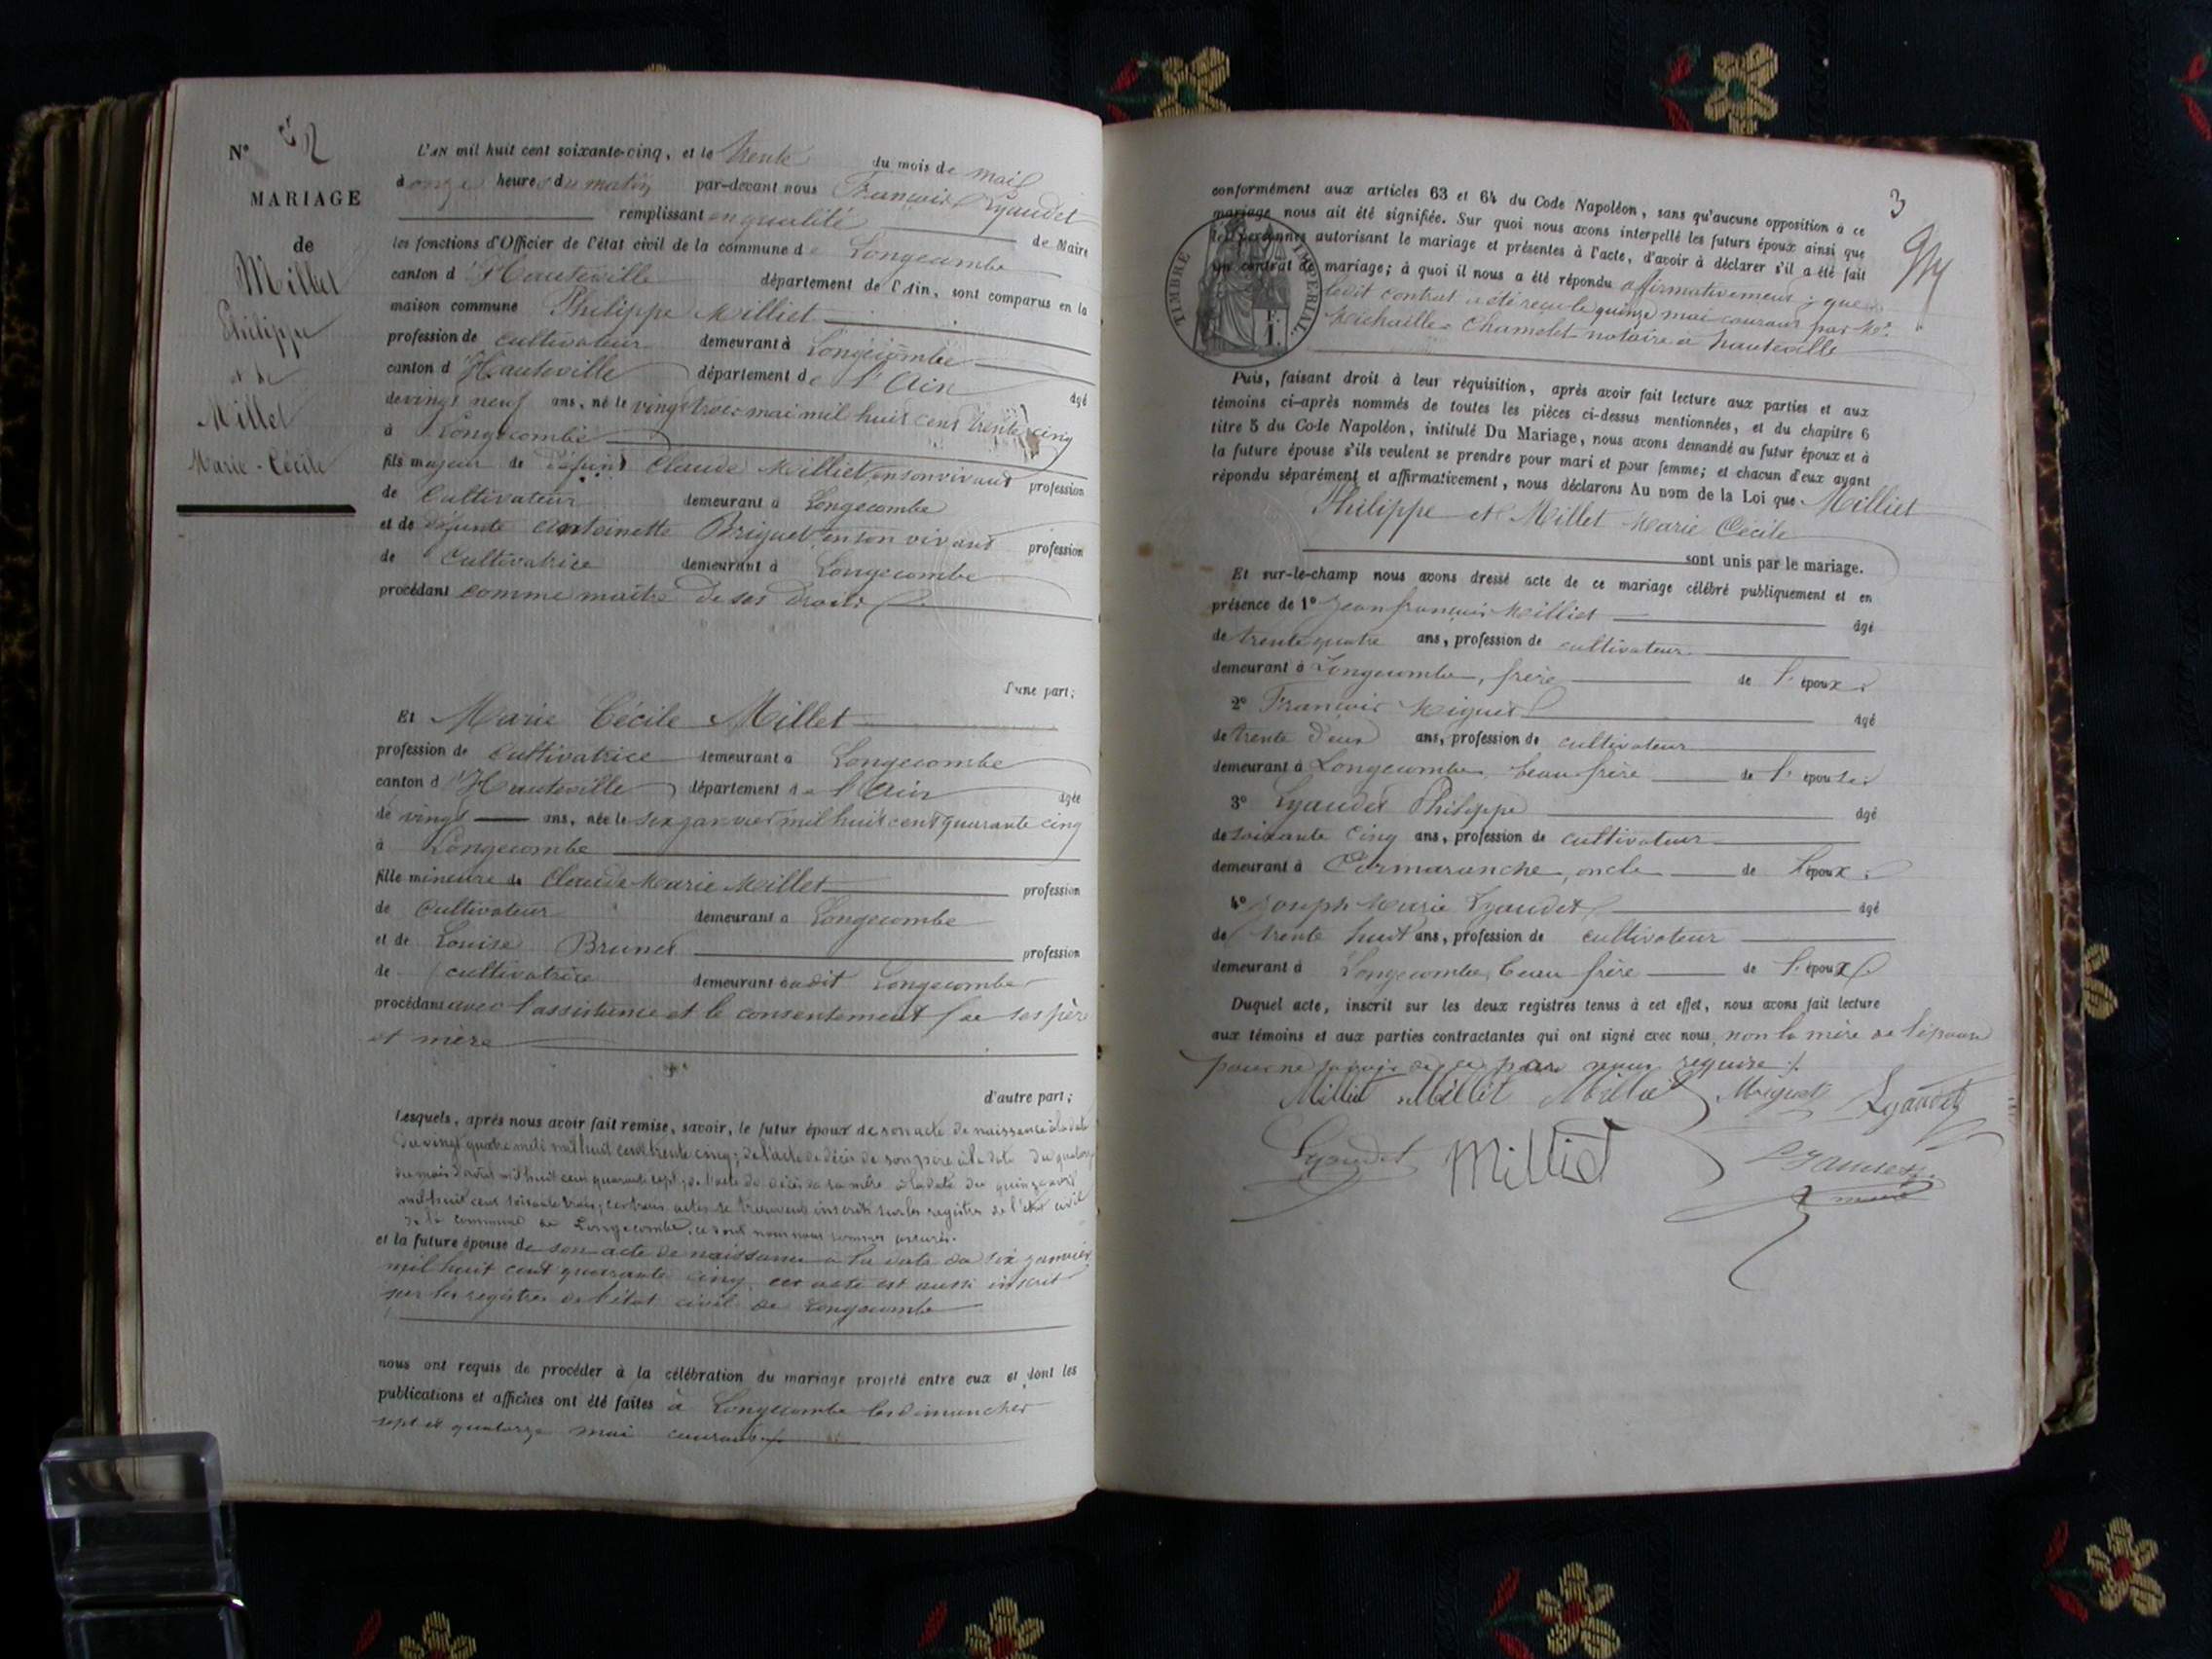 N° 2
MARIAGE
de
Millet
Philippe
et de
Millet
Marie-Cécile
L'AN mil huit cent soixante-cinq, et le trente du mois de mai
à onze heures du matin par-devant nous François Lyaudet
remplissant en qualité de Maire
les fonctions d'Officier de l'état civil de la commune de Longecombe
canton d'Hauteville département de l'Ain, sont comparus en la
maison commune Philippe Milliet
profession de cultivateur demeurant à Longecombe
canton d'Hauteville département de l'Ain âgé
de vingt neuf ans, né le vingt trois mai mil huit cent trente cinq
à Longecombe
fils majeur de défunt Claude Milliet, en son vivant profession
de Cultivateur demeurant à Longecombe
et de défunte Antoinette Briguet en son vivant profession
de Cultivatrice demeurant à Longecombe
procédant comme maître de ses droits
d'une part;
Et Marie Cécile Millet
profession de Cultivatrice demeurant à Longecombe
canton d'Hauteville département de l'Ain âgée
de vingt ans, née le six janvier mil huit cent quarante cinq
à Longecombe
fille mineure de Claude Marie Millet profession
de Cultivateur demeurant à Longecombe
et de Louise Brunet profession
de cultivatrice demeurant audit Longecombe
procédant avec l'assistance et le consentement de ses père
et mère
d'autre part;
Lesquels, après nous avoir fait remise, savoir, le futur époux de son acte de naissance à la date
du vingt quatre mai mil huit cent trente cinq; de l'acte de décès de son père à la date du quatorze
du mois d'août mil huit cent quarante sept; de l'acte de décès de sa mère à la date du quinze avril
mil huit cent soixante trois; ces trois actes se trouvent inscrits sur les registres de l'état civil
de la commune de Longecombe, ce dont nous nous sommes assurés.
et la future épouse de son acte de naissance à la date du six janvier
mil huit cent quarante cinq, cet acte est aussi inscrit
sur les registres de l'état civil de Longecombe
nous ont requis de procéder à la célébration du mariage projeté entre eux et dont les
publications et affiches ont été faites à Longecombe les dimanches
sept et quatorze mai courant
3
conformément aux articles 63 et 64 du Code Napoléon, sans qu'aucune opposition à ce
mariage nous ait été signifiée. Sur quoi nous avons interpellé les futurs époux ainsi que
les personnes autorisant le mariage et présentes à l'acte, d'avoir à déclarer s'il a été fait
un contrat de mariage; à quoi il nous a été répondu affirmativement; que
ledit contrat a été reçu le quinze mai courant par Me
Michaille-Chamelet notaire à hauteville
TIMBRE IMPÉRIAL
Puis, faisant droit à leur réquisition, après avoir fait lecture aux parties et aux
témoins ci-après nommés de toutes les pièces ci-dessus mentionnées, et du chapitre 6
titre 5 du Code Napoléon, intitulé Du Mariage, nous avons demandé au futur époux et à
la future épouse s'ils veulent se prendre pour mari et pour femme; et chacun d'eux ayant
répondu séparément et affirmativement, nous déclarons Au nom de la Loi que Milliet
Philippe et Millet Marie Cécile
sont unis par le mariage.
Et sur-le-champ nous avons dressé acte de ce mariage célébré publiquement et en
présence de 1° Jean françois Milliet âgé
de trente quatre ans, profession de cultivateur
demeurant à Longecombe, frère de l'époux.
2° François Miguet âgé
de trente deux ans, profession de cultivateur
demeurant à Longecombe, beau frère de l'épouse.
3° Lyaudet Philippe âgé
de soixante cinq ans, profession de cultivateur
demeurant à Cormaranche, oncle de l'époux.
4° Joseph Marie Lyaudet âgé
de trente huit ans, profession de cultivateur
demeurant à Longecombe, beau frère de l'époux
Duquel acte, inscrit sur les deux registres tenus à cet effet, nous avons fait lecture
aux témoins et aux parties contractantes qui ont signé avec nous, non la mère de l'épouse
pour ne savoir de ce par nous requise
Milliet Millet Millet Miguet Lyaudet
Lyaudet Milliet Lyaudet
maire